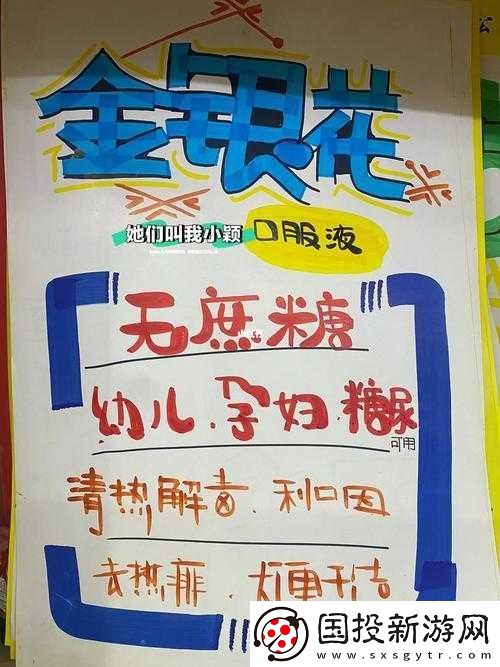 金银花
她们叫我小颖 口服液
无庶糖
幼儿.孕妇.糖尿
可用
清热解毒.利咽
去热痱.大便干结
国投新游网
WWW.SXSGYTR.COM